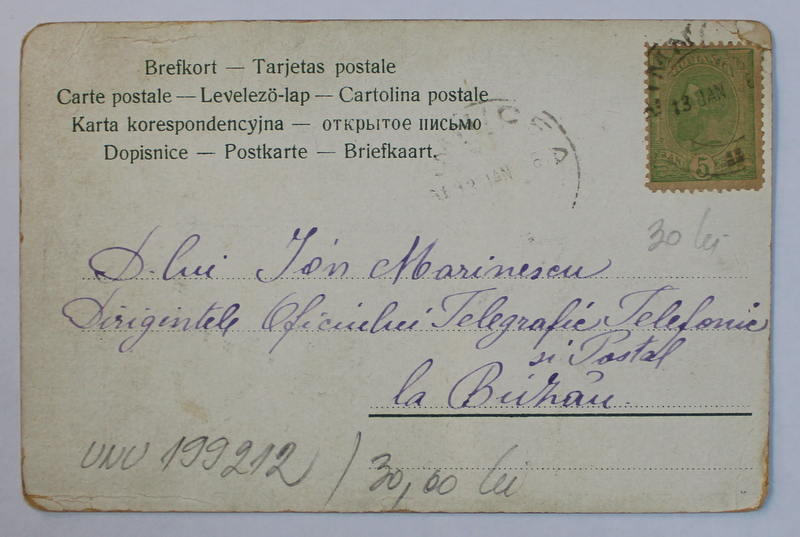 Brefkort — Tarjetas postale
Carte postale — Levelezö-lap — Cartolina postale
Karta korespondencyjna — открытое письмо
Dopisnice — Postkarte — Briefkaart.
13 JAN
5
13 JAN
30 lei
D-lui Ión Marinescu
Dirigintele Oficiului Telegrafic Telefonic
si Postal
la Búzău.
UNU 199212 / 30,00 lei